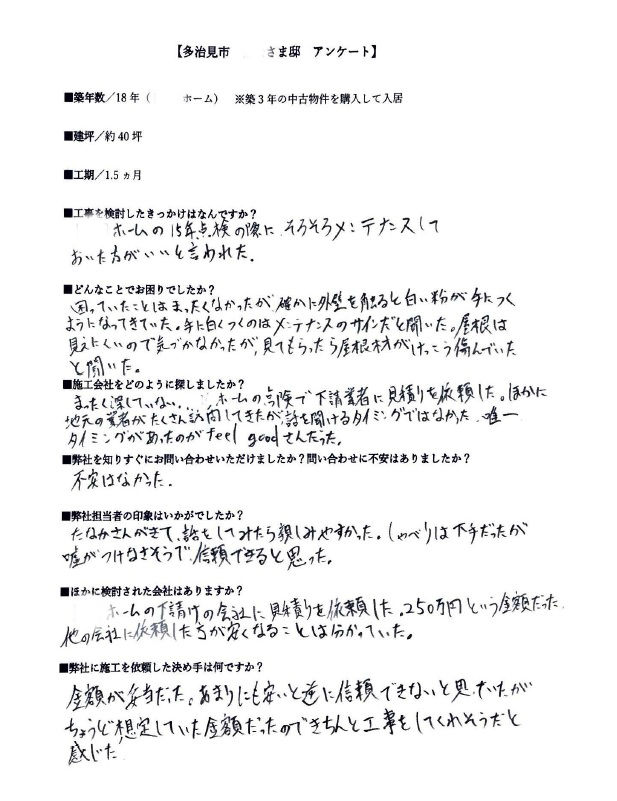 【多治見市 さま邸 アンケート】
■築年数／18年（ ホーム） ※築3年の中古物件を購入して入居
■建坪／約40坪
■工期／1.5ヵ月
■工事を検討したきっかけはなんですか？
ホームの15年点検の際に そろそろメンテナンスして
おいた方がいいと言われた。
■どんなことでお困りでしたか？
困っていたことはまったくなかったが、確かに外壁を触ると白い粉が手につく
ようになってきていた。手に白くつくのはメンテナンスのサインだと聞いた。屋根は
見えにくいので気づかなかったが、見てもらったら屋根材がけっこう傷んでいた
と聞いた。
■施工会社をどのように探しましたか？
まったく探していない。 ホームの 下請業者に見積りを依頼した。ほかに
地元の業者がたくさん訪問してきたが話を聞けるタイミングではなかった 唯一
タイミングがあったのがfeel goodさんだった。
■弊社を知りすぐにお問い合わせいただけましたか？問い合わせに不安はありましたか？
不安はなかった。
■弊社担当者の印象はいかがでしたか？
たなかさんがきて、話をしてみたら親しみやすかった。しゃべりは下手だったが
嘘がつけなさそうで、信頼できると思った。
■ほかに検討された会社はありますか？
ホームの下請けの会社に見積りを依頼した。250万円という金額だった
他の会社に依頼した方が安くなることは分かっていた。
■弊社に施工を依頼した決め手は何ですか？
金額が妥当だった。あまりにも安いと逆に信頼できないと思っていたが
ちょうど想定していた金額だったのできちんと工事をしてくれそうだと
感じた